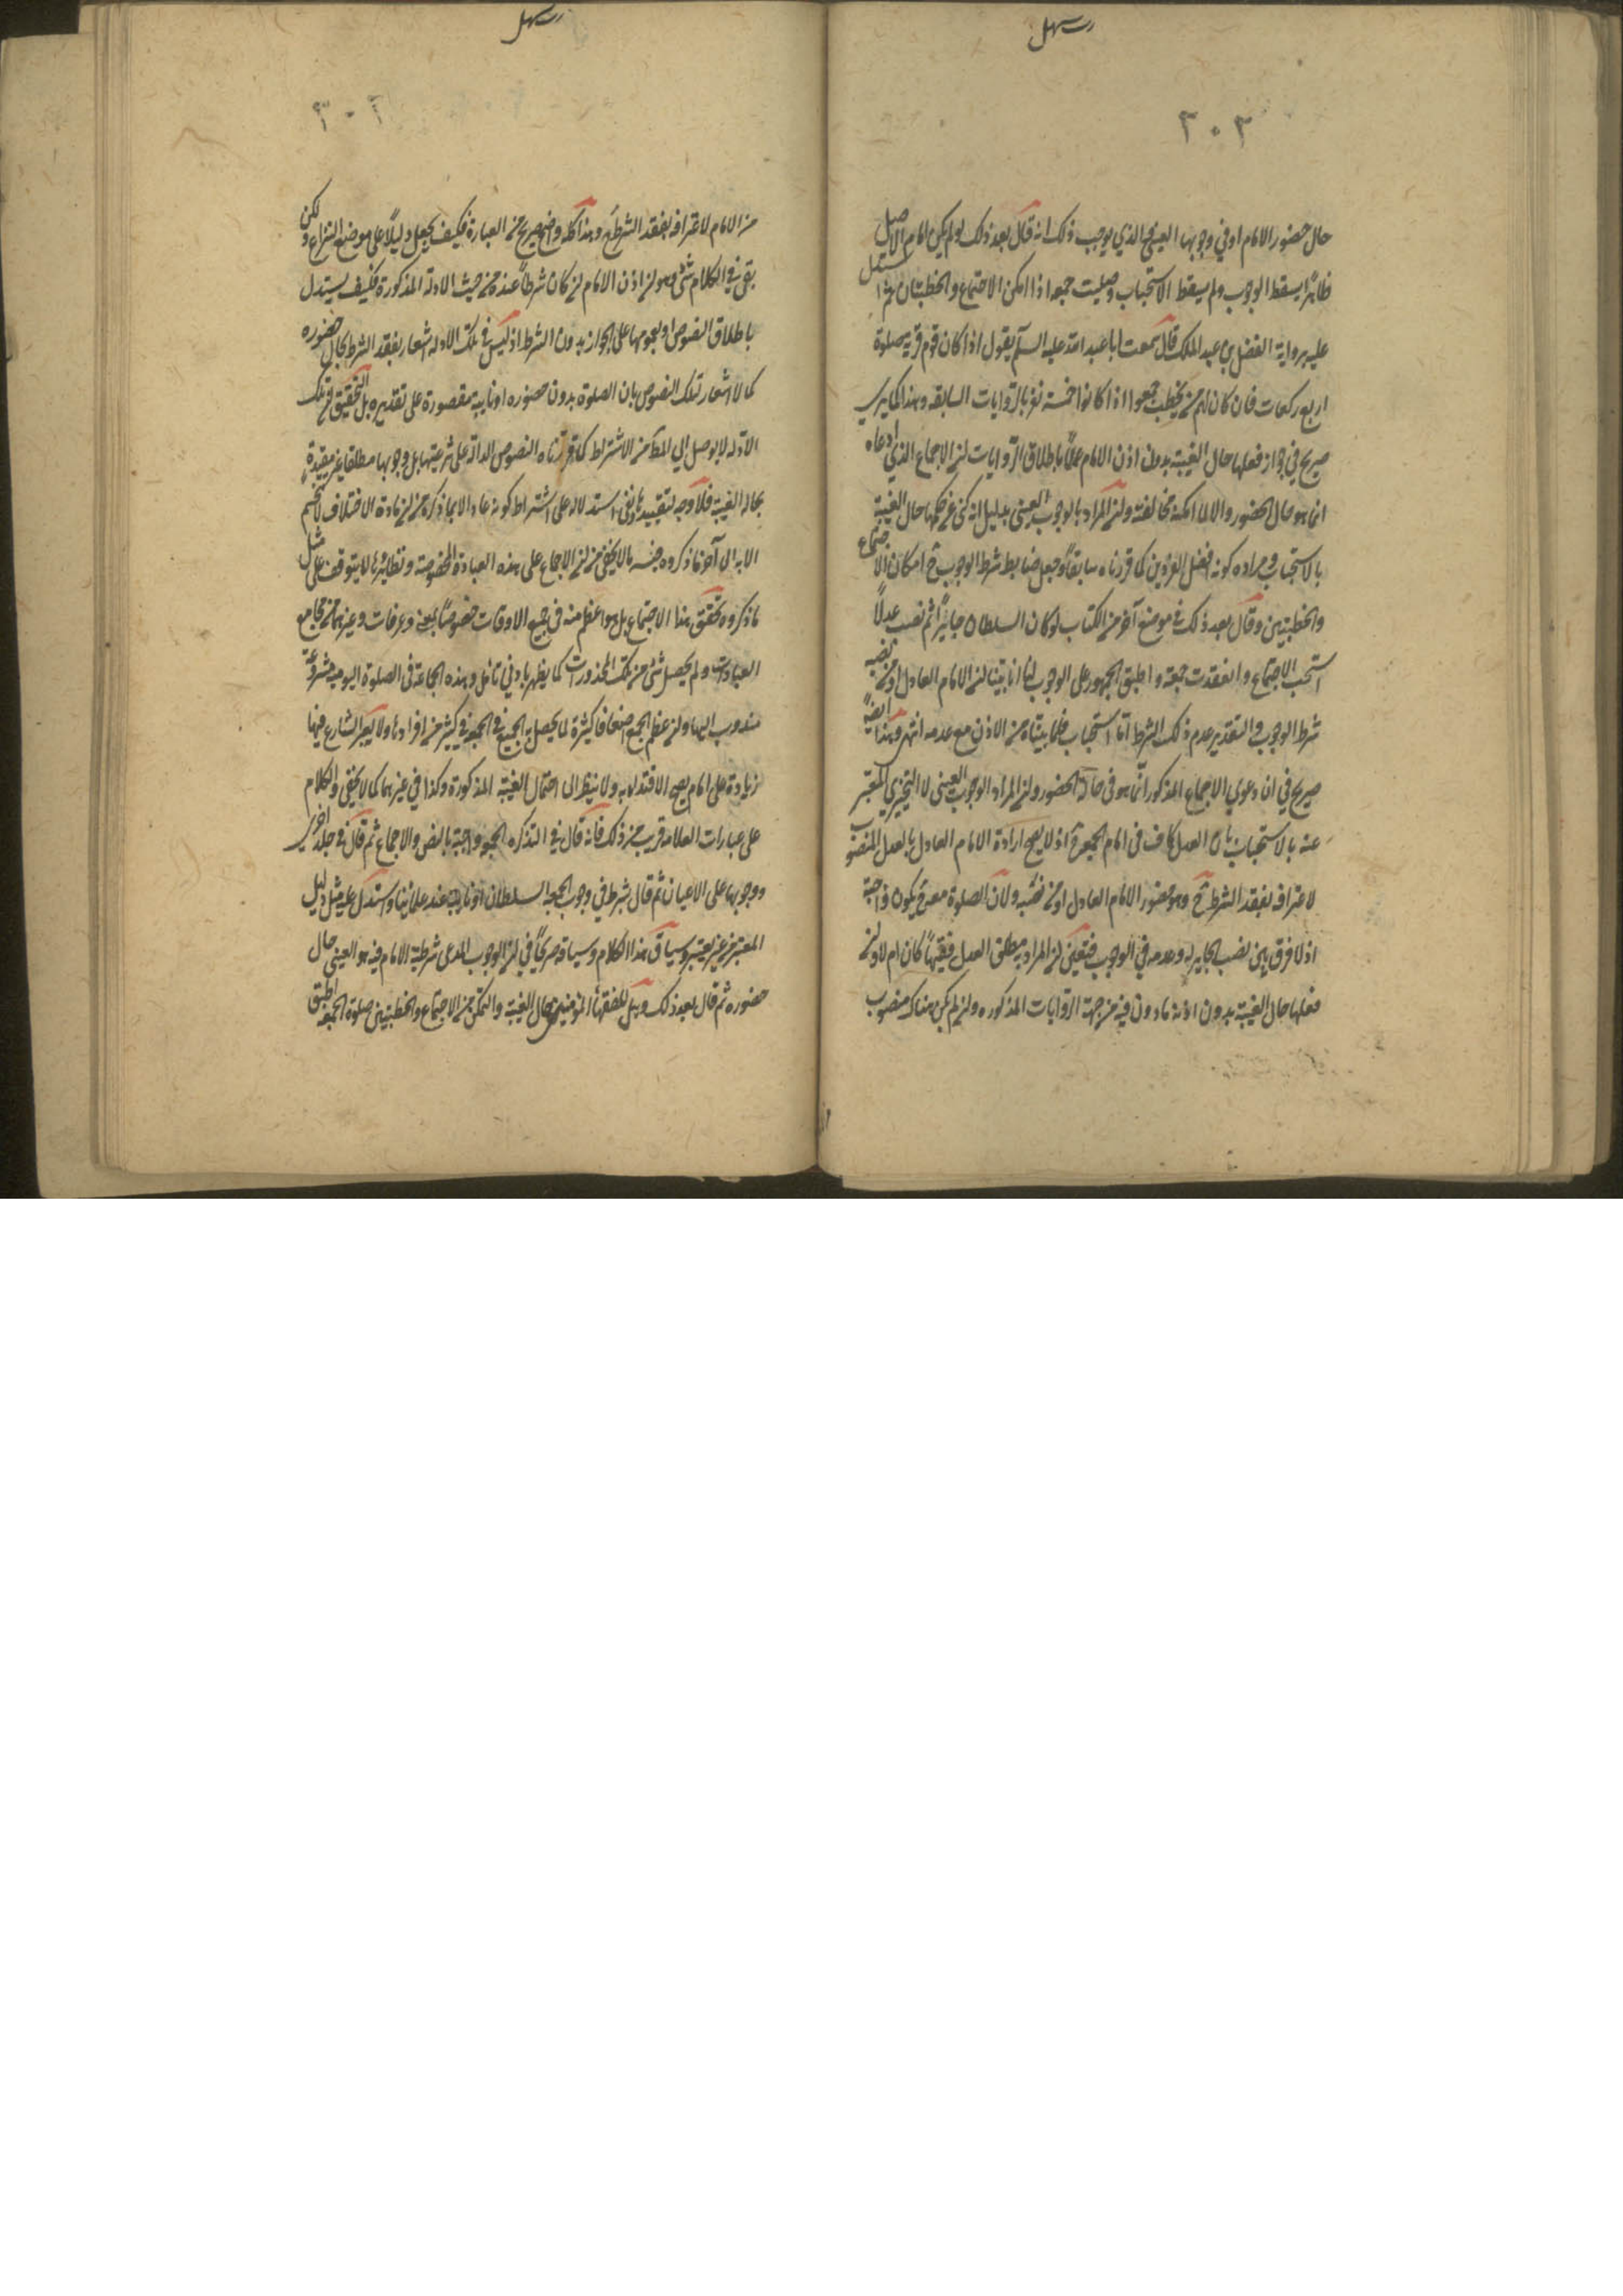 رسهل
٢٠٢
حال حضور الامام او في وجوبها العيني و الذي يوجب ذلك انه قال بعد ذلك لو لم يكن امام الاصل
ظاهرا يسقط الوجوب ولم يسقط الاستحباب وصليت جمعه اذا امكن الاجتماع والخطبتان ثم استدل
عليه برواية الفضل بن عبد الملك قال سمعت ابا عبد الله عليه السلام يقول اذا كان قوم في قرية صلوا
اربع ركعات فان كان لهم من يخطب جمعوا اذا كانوا خمسة نفر بالروايات السابقه وهذا كما يرى
صريح في جواز فعلها حال الغيبة بدون اذن الامام عملا باطلاق الروايات لان الاجماع الذي ادعاه
انما هو حال الحضور والا لما امكنه مخالفته ولان المراد بالوجوب العيني بدليل انه كنى عن حكمها حال الغيبة
بالاستحباب ومراده كونه افضل الفردين كما قررناه سابقا وجعل ضابط شرط الوجوب ح امكان الاجتماع
والخطبتين وقال بعد ذلك في موضع آخر من الكتاب لو كان السلطان جايرا ثم نصب عدلا
استحب الاجتماع وانعقدت جمعة واطبق الجمهور على الوجوب لنا انا بينا ان الامام العادل او من نصبه
شرط الوجوب والتقدير عدم ذلك الشرط اما استحباب فلما بيناه من الاذن مع عدمه انتهى وهذا ايضا
صريح في ان دعوى الاجماع المذكور انما هو في حالة الحضور ولان المراد الوجوب العيني لا التخييري المعبر
عنه بالاستحباب بان العدل كاف في امام الجمعة ح اذ لا يصح ارادة الامام العادل بالعدل المنصوب
لاعترافه بفقد الشرط ح وهو حضور الامام العادل او من نصبه ولان الصلوة معه ح يكون واجبة
اذ لا فرق بين نصب الجاير له وعدمه في الوجوب فتعين ان المراد به مطلق العدل فقيها كان ام لا ولان
فعلها حال الغيبة بدون اذنه ماذون فيه من جهة الروايات المذكوره ولان لم يكن هناك منصوب
رسهل
من الامام لاعترافه بفقد الشرط ح وهذا كله واضح صريح من العبارة فكيف يجعل دليلا على موضع النزاع ولكن
بقي في الكلام شئ وهو ان اذن الامام ان كان شرطا عنده فمن حيث الادلة المذكورة فكيف يستدل
باطلاق النصوص او بعمومها على الجواز بدون الشرط اذ ليس في تلك الادله اشعار بفقد الشرط بحال حضوره
كما لا اشعار تلك النصوص بان الصلوة بدون حضوره او نايبه مقصورة على تقديره بل التحقيق ان تلك
الادله لا يوصل الى المط من الاشتراط كما قررناه النصوص الدالة على شرعيتها بل وجوبها مطلقا غير مقيدة
بحالة الغيبة فلا وجه لتقييدها وبقي استدلاله على اشتراط كونه عادلا بما ذكره من ان مادة الاختلاف لا تحسم
الا به الى آخر ما ذكروه فيه ما لا يخفى من ان الاجماع على هذه العبادة المخصوصة ونظايرها لا يتوقف على مثل
ما ذكروه تحقق هذا الاجتماع بل هو اعظم منه في جميع الاوقات خصوصا بمنى وعرفات وغيرهما من مجامع
العبادات ولم يحصل شئ من تلك المحذورات كما يظهر بادنى تامل وهذه الجماعة في الصلوة اليومية مشروعة
مندوب اليها ولان عظم الجمع اضعافا كثيرة لما يحصل به الجميع في الجمعة في كثير من افرادها ولا يعتبر الشارع فيها
زيادة على امام يصح الاقتداء به ولا ينظر الى احتمال الغيبة المذكورة وكذا في غيرهما كما لا يخفى والكلام
على عبارات العلامه قريب من ذلك فانه قال في التذكره الجمعة واجبة بالنص والاجماع ثم قال في جلد اخر
ووجوبها على الاعيان ثم قال يشترط في وجوب الجمعه السلطان او نايبه عند علمائنا واستدل عليه بمثل دليل
المعتبر من غير تغيير وسياق هذا الكلام وسياقه صريحا في ان الوجوب المدعى شرطية الامام فيه هو العيني حال
حضوره ثم قال بعد ذلك وهل للفقهاء المؤمنين حال الغيبة والتمكن من الاجتماع والخطبتين صلوة الجمعه اطبق